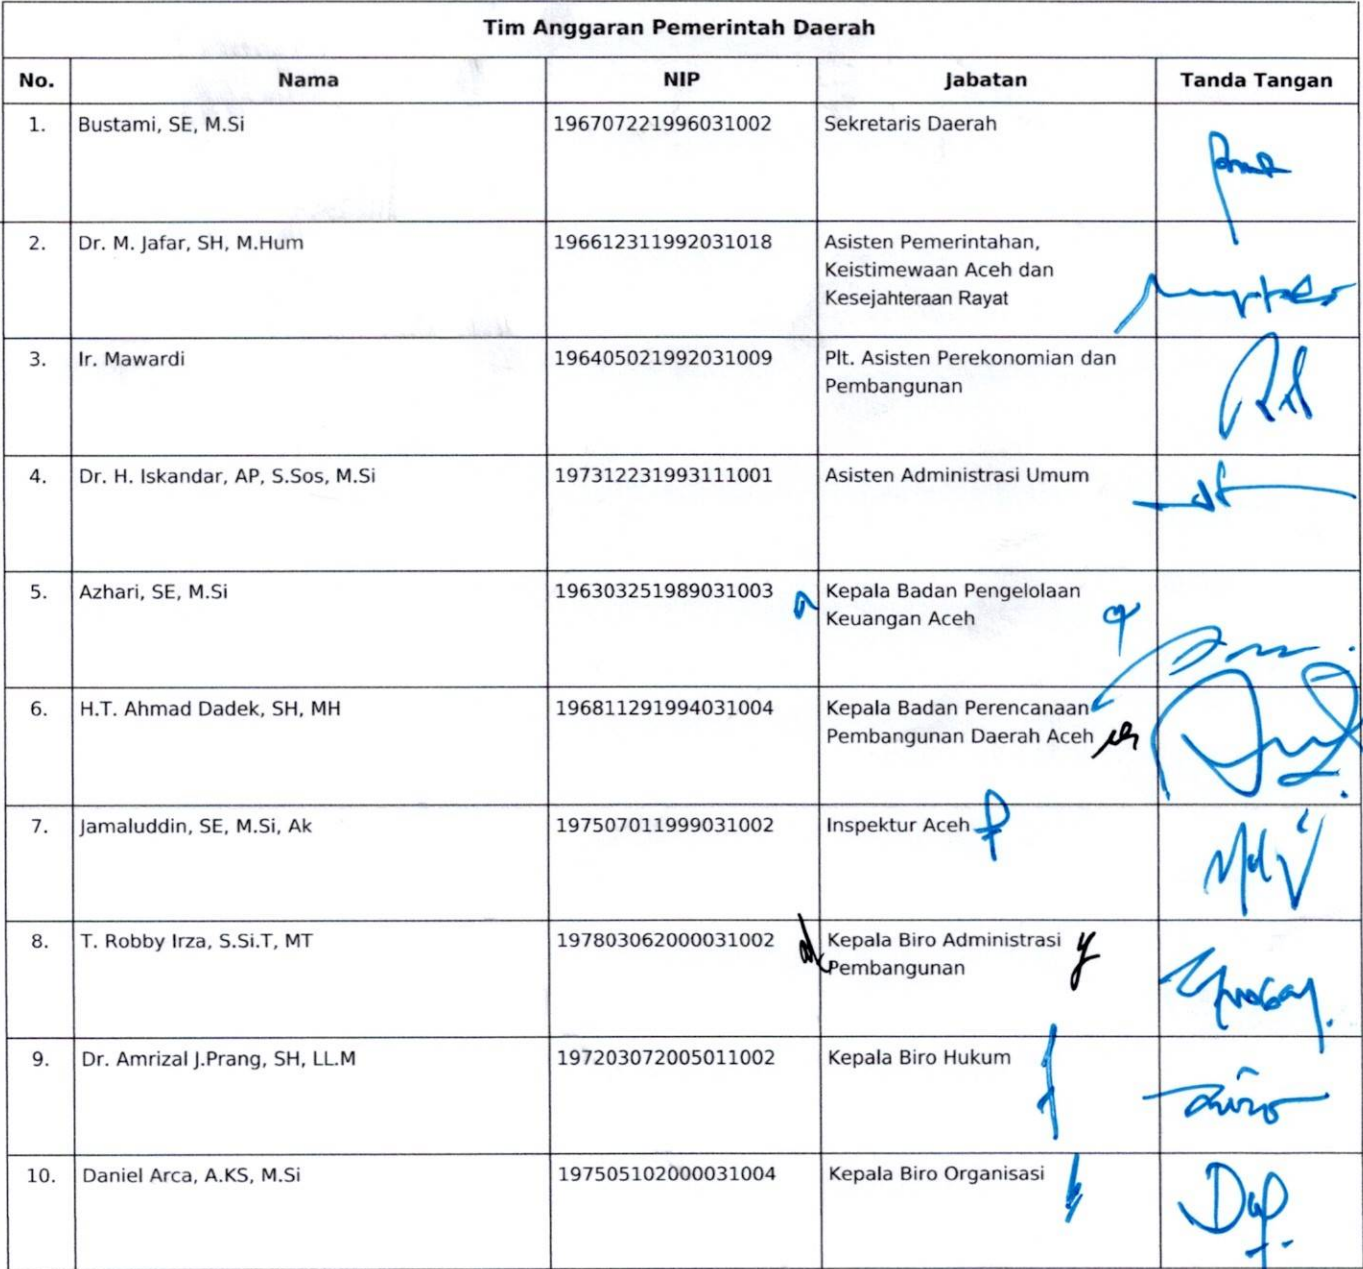 Tim Anggaran Pemerintah Daerah
No. Nama NIP Jabatan Tanda Tangan
1. Bustami, SE, M.Si 196707221996031002 Sekretaris Daerah
2. Dr. M. Jafar, SH, M.Hum 196612311992031018 Asisten Pemerintahan,
Keistimewaan Aceh dan
Kesejahteraan Rayat
3. Ir. Mawardi 196405021992031009 Plt. Asisten Perekonomian dan
Pembangunan
4. Dr. H. Iskandar, AP, S.Sos, M.Si 197312231993111001 Asisten Administrasi Umum
5. Azhari, SE, M.Si 196303251989031003 Kepala Badan Pengelolaan
Keuangan Aceh
6. H.T. Ahmad Dadek, SH, MH 196811291994031004 Kepala Badan Perencanaan
Pembangunan Daerah Aceh
7. Jamaluddin, SE, M.Si, Ak 197507011999031002 Inspektur Aceh
8. T. Robby Irza, S.Si.T, MT 197803062000031002 Kepala Biro Administrasi
Pembangunan
9. Dr. Amrizal J.Prang, SH, LL.M 197203072005011002 Kepala Biro Hukum
10. Daniel Arca, A.KS, M.Si 197505102000031004 Kepala Biro Organisasi